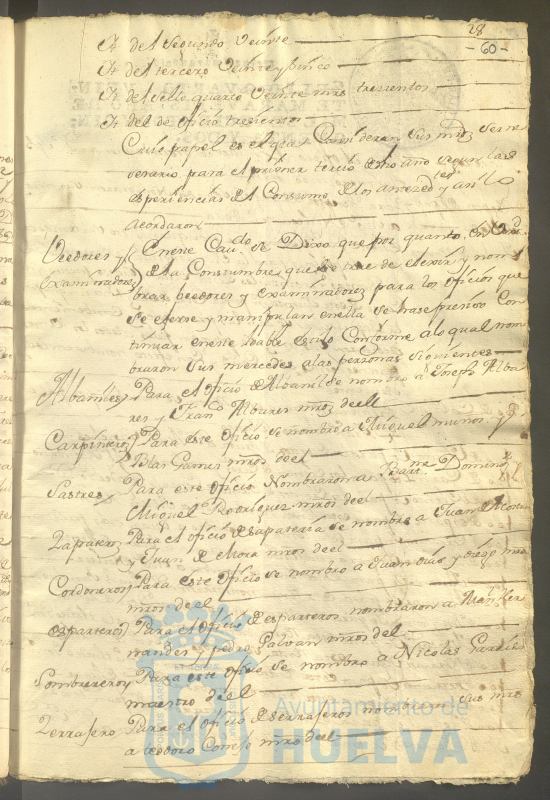 28
- 60 -
Yt del segundo Veinte
Yt del tercero Veinte y sinco
Yt del sello quarto Veinte mrs tresientos
Yt del de oficio tresientos
Cuio papel es el que Consideran sus mrds ser ne
sesario para el primer tercio de este año segun las
esperiencias del Consumo de los anteced.tes y asi lo
acordaron
Veedores y
examinadores
En este Cau.do se Dixo que por quanto en
de la Constumbre que se tiene de elexir y nom
brar beedores y examinadores para los oficios que
se exerse y manipulan en ella se hase presiso Con
tinuar en este loable estilo Conforme a lo qual nom
braron sus mercedes a las personas siguientes
Albañiles
Para el oficio de Albañil se nombro a Joseph Alba
res y Fran.co Albares mros de el
Carpinteros
Para este oficio se nombro a Miguel muñoz y
Blas Gomes mros de el
Sastres
Para este oficio Nombraron a Bart.me Doming
Miguel Rodriguez mros del
Zapateros
Para el oficio de sapateria se nombro a Juan de Acosta
y Juan de Mora mros de el
Cordoneros
Para este oficio se nombro a Juan Dias y diego
mros de el
esparteros
Para el oficio de esparteros nombraron a Man.l Fer
nandes y pedro Galvan mros del
Sombrereros
Para este oficio se nombro a Nicolas Garcia
maestro de el
Zerrajero
Para el oficio de serrajeros nombraron sus mrds
a teodoro Conejo mro del
Ayuntamiento de
HUELVA